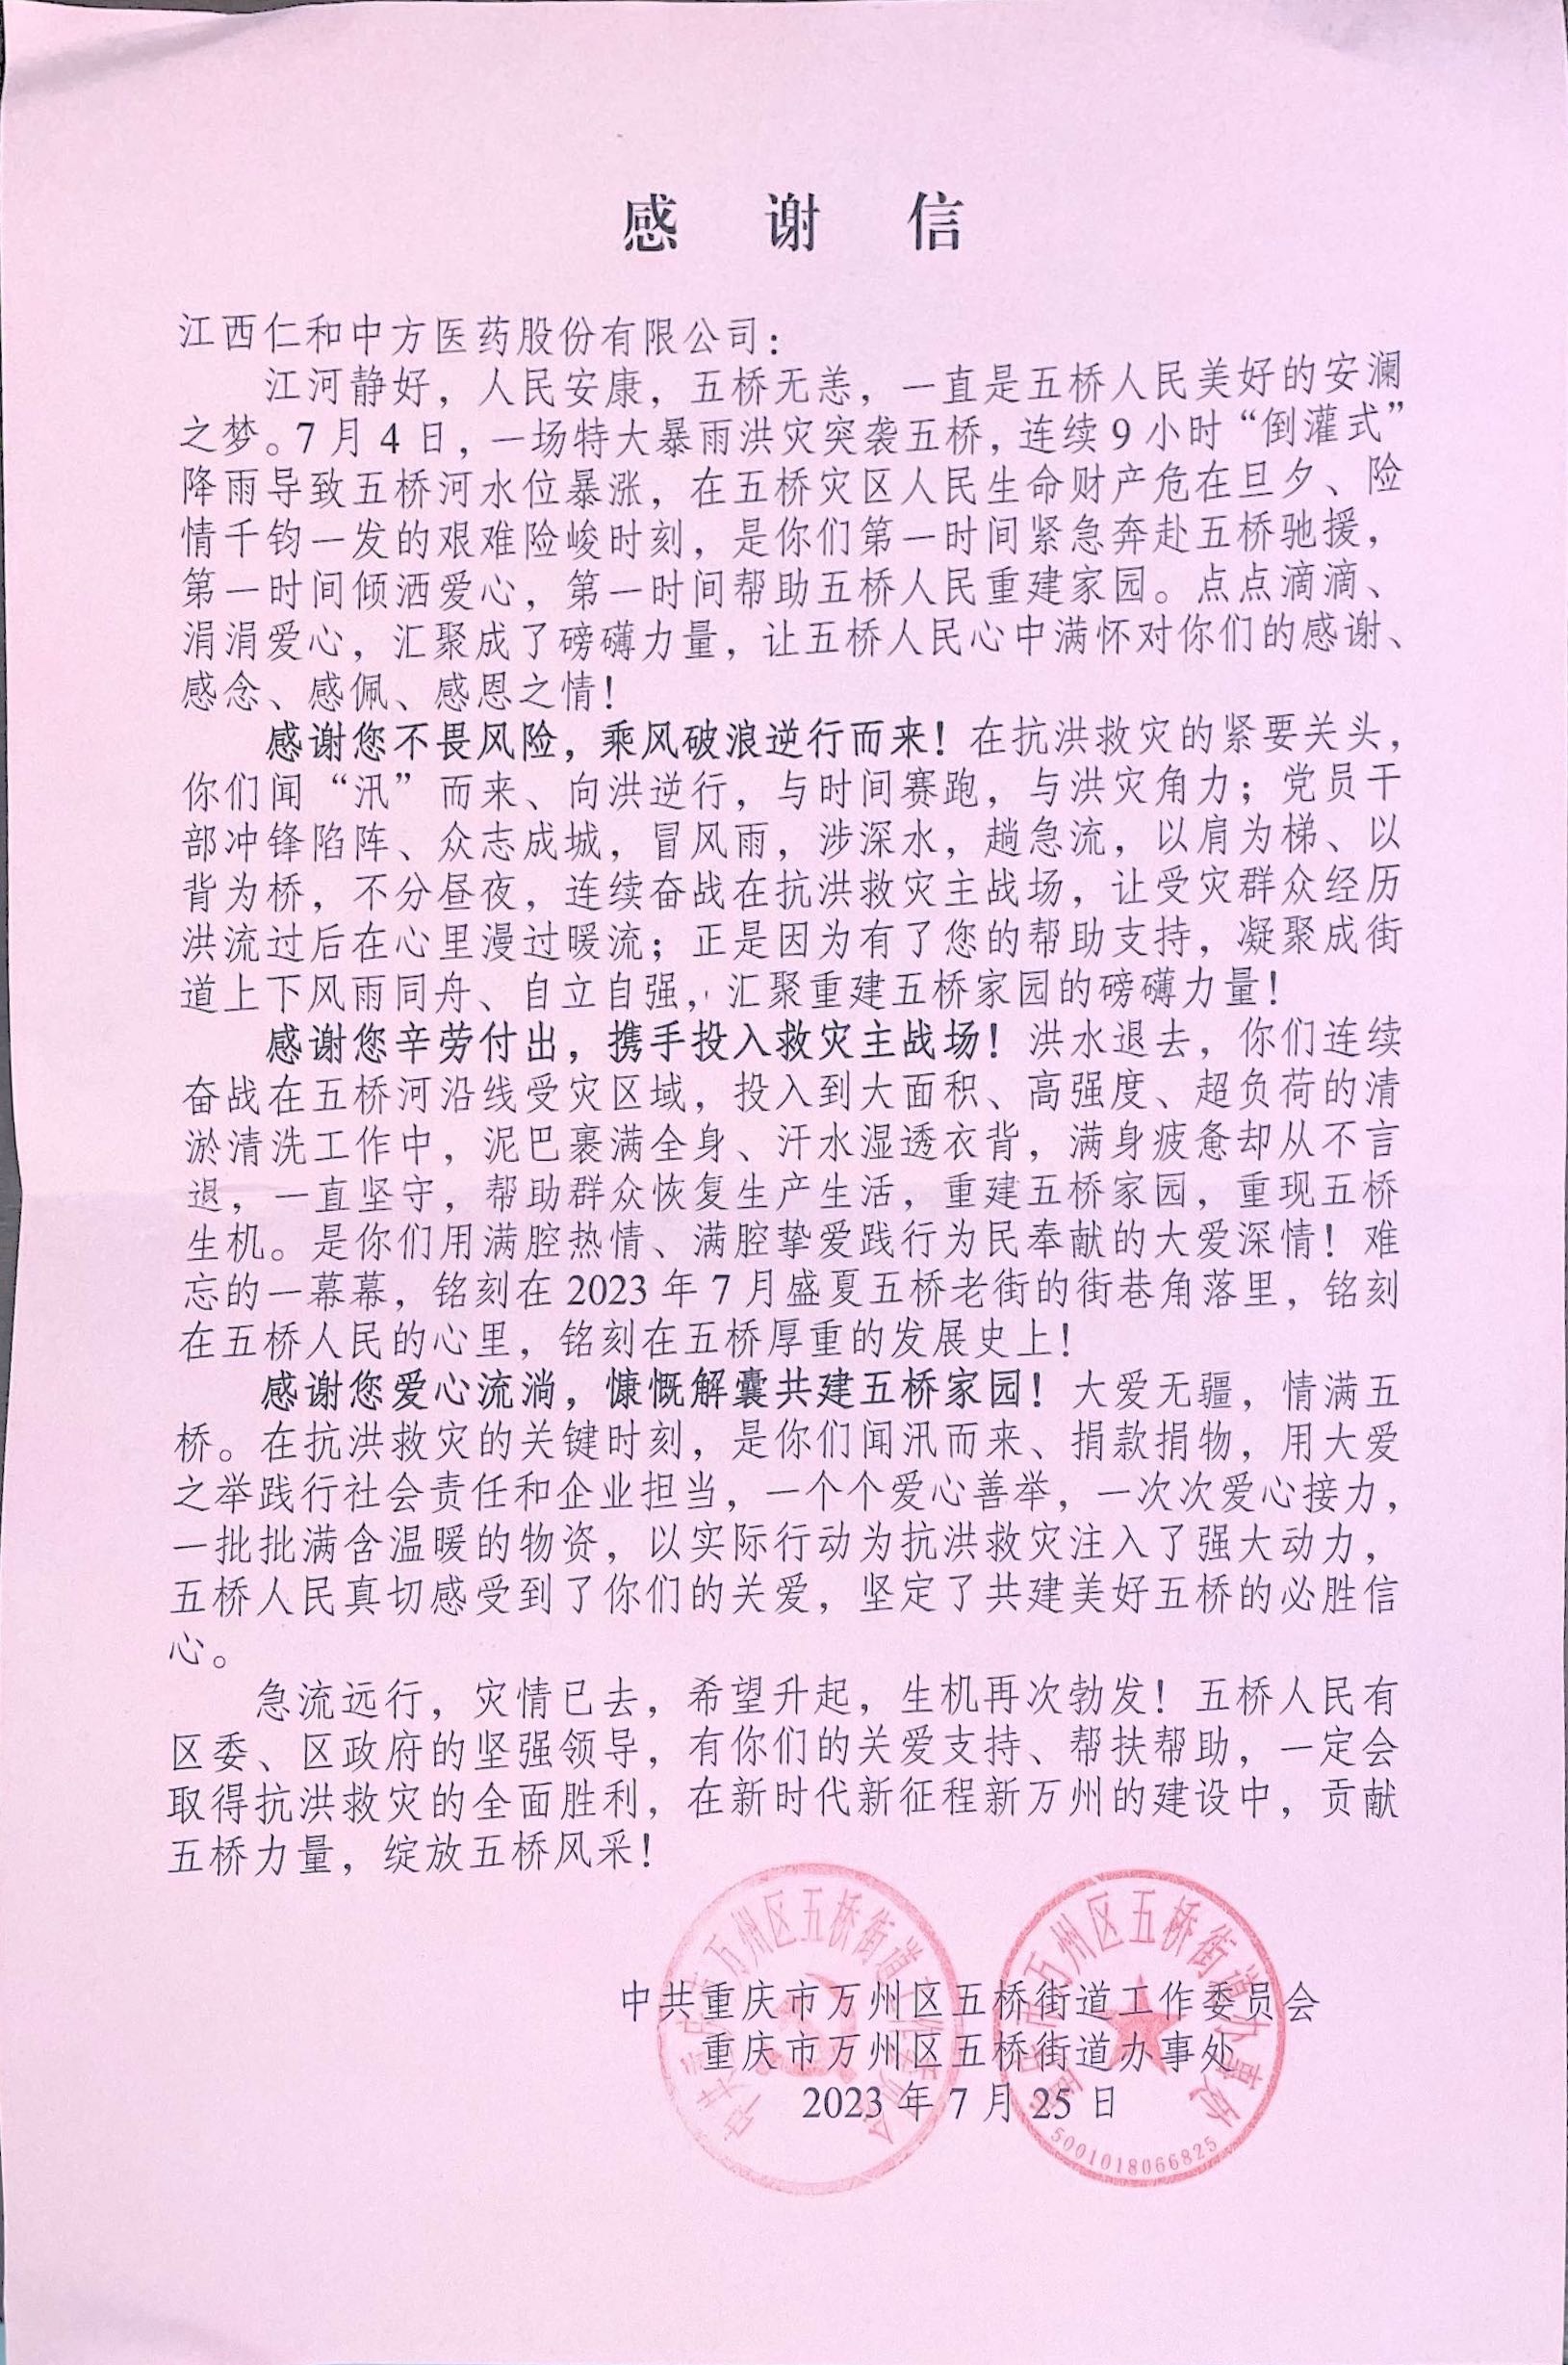 感谢信
江西仁和中方医药股份有限公司：
江河静好，人民安康，五桥无恙，一直是五桥人民美好的安澜
之梦。7月4日，一场特大暴雨洪灾突袭五桥，连续9小时“倒灌式”
降雨导致五桥河水位暴涨，在五桥灾区人民生命财产危在旦夕、险
情千钧一发的艰难险峻时刻，是你们第一时间紧急奔赴五桥驰援，
第一时间倾洒爱心，第一时间帮助五桥人民重建家园。点点滴滴、
涓涓爱心，汇聚成了磅礴力量，让五桥人民心中满怀对你们的感谢、
感念、感佩、感恩之情！
感谢您不畏风险，乘风破浪逆行而来！在抗洪救灾的紧要关头，
你们闻“汛”而来、向洪逆行，与时间赛跑，与洪灾角力；党员干
部冲锋陷阵、众志成城，冒风雨，涉深水，趟急流，以肩为梯、以
背为桥，不分昼夜，连续奋战在抗洪救灾主战场，让受灾群众经历
洪流过后在心里漫过暖流；正是因为有了您的帮助支持，凝聚成街
道上下风雨同舟、自立自强，汇聚重建五桥家园的磅礴力量！
感谢您辛劳付出，携手投入救灾主战场！洪水退去，你们连续
奋战在五桥河沿线受灾区域，投入到大面积、高强度、超负荷的清
淤清洗工作中，泥巴裹满全身、汗水湿透衣背，满身疲惫却从不言
退，一直坚守，帮助群众恢复生产生活，重建五桥家园，重现五桥
生机。是你们用满腔热情、满腔挚爱践行为民奉献的大爱深情！难
忘的一幕幕，铭刻在2023年7月盛夏五桥老街的街巷角落里，铭刻
在五桥人民的心里，铭刻在五桥厚重的发展史上！
感谢您爱心流淌，慷慨解囊共建五桥家园！大爱无疆，情满五
桥。在抗洪救灾的关键时刻，是你们闻汛而来、捐款捐物，用大爱
之举践行社会责任和企业担当，一个个爱心善举，一次次爱心接力，
一批批满含温暖的物资，以实际行动为抗洪救灾注入了强大动力，
五桥人民真切感受到了你们的关爱，坚定了共建美好五桥的必胜信
心。
急流远行，灾情已去，希望升起，生机再次勃发！五桥人民有
区委、区政府的坚强领导，有你们的关爱支持、帮扶帮助，一定会
取得抗洪救灾的全面胜利，在新时代新征程新万州的建设中，贡献
五桥力量，绽放五桥风采！
中共重庆市万州区五桥街道工作委员会
重庆市万州区五桥街道办事处
2023年7月25日
5001018066825